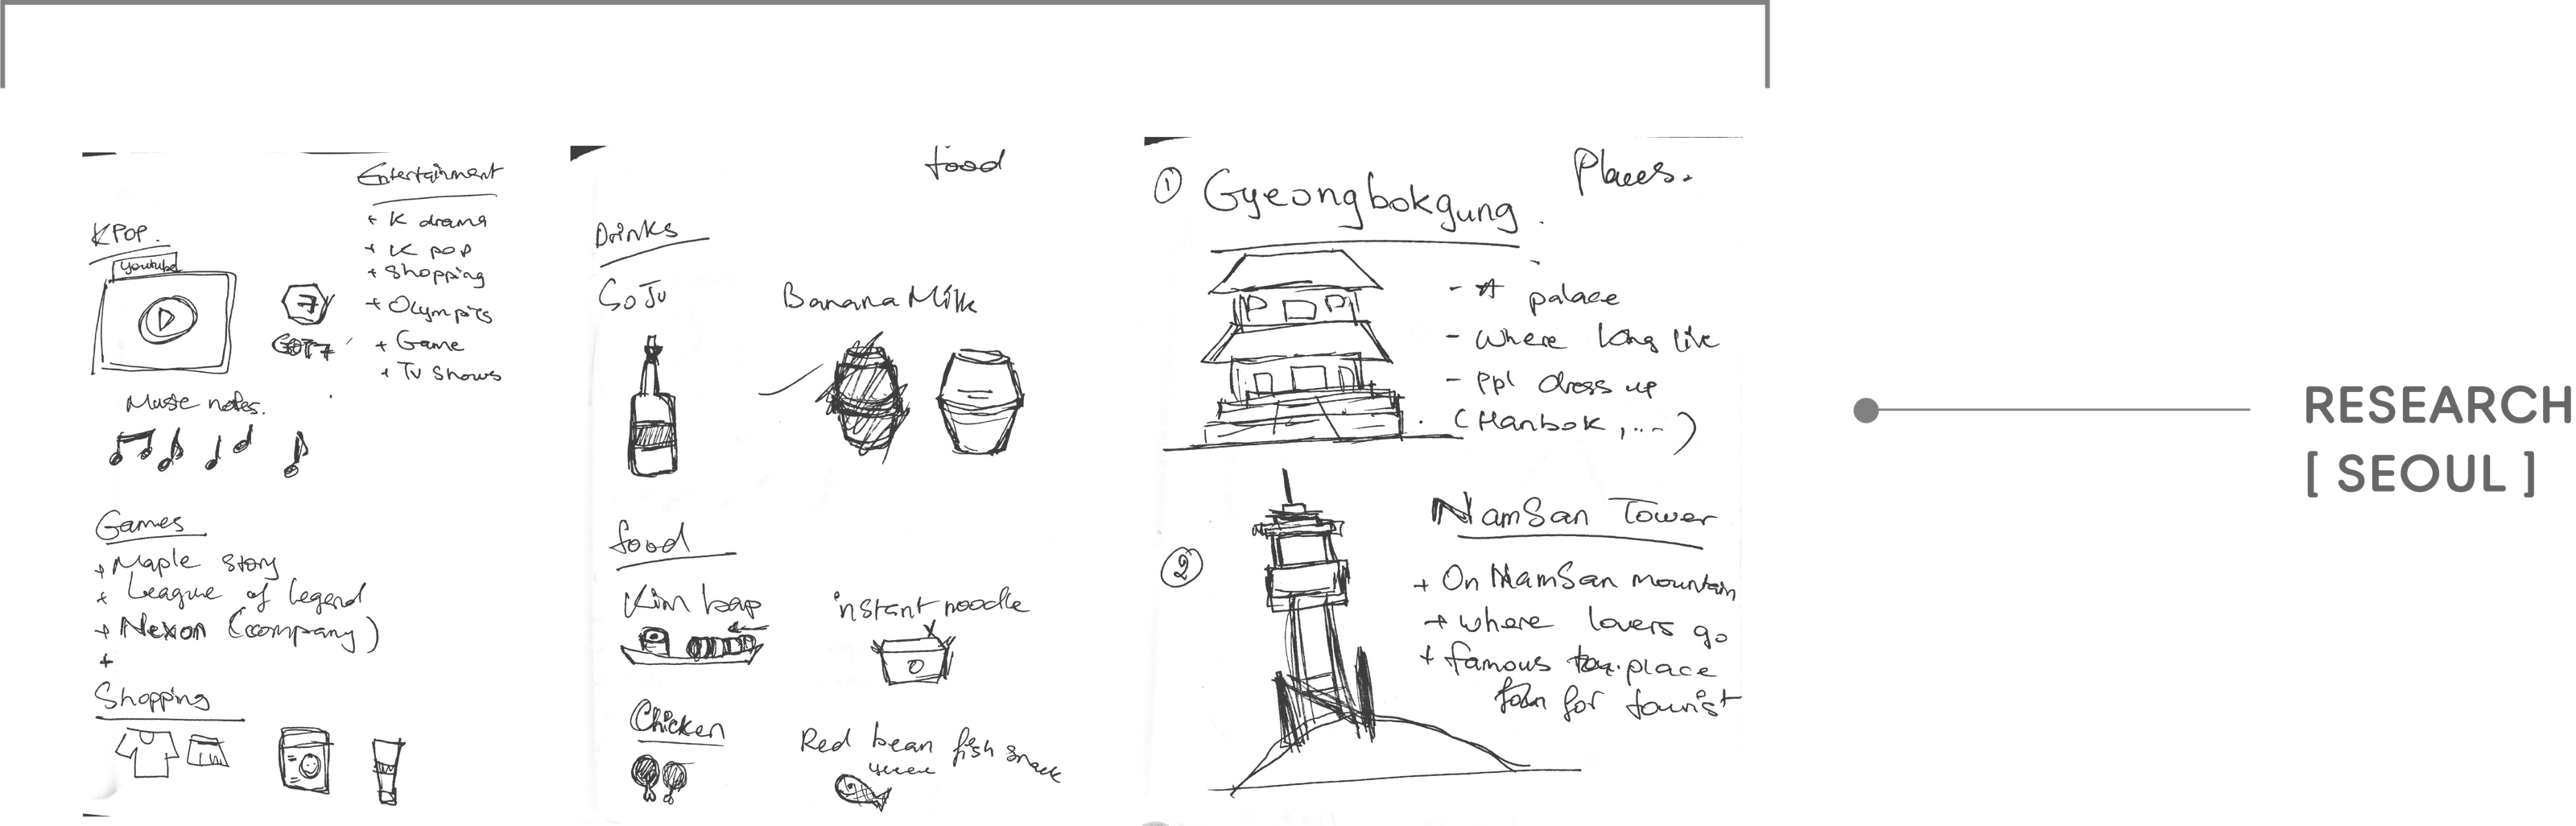 Entertainment
+ K drama
+ K pop
+ Shopping
+ Olympics
+ Game
+ Tv shows
KPOP.
Youtube
7
GOT7
Music notes.
Games
+ Maple story
+ League of legend
+ Nexon (company)
+
Shopping
food
Drinks
SoJu
Banana Milk
food
Kim bap
instant noodle
Chicken
Red bean fish snack
Places.
① Gyeongbokgung.
- A palace
- Where king live
- Ppl dress up
(Hanbok, ...)
②
NamSan Tower
+ On NamSan mountain
+ where lovers go
+ famous place
for tourist
RESEARCH
[ SEOUL ]